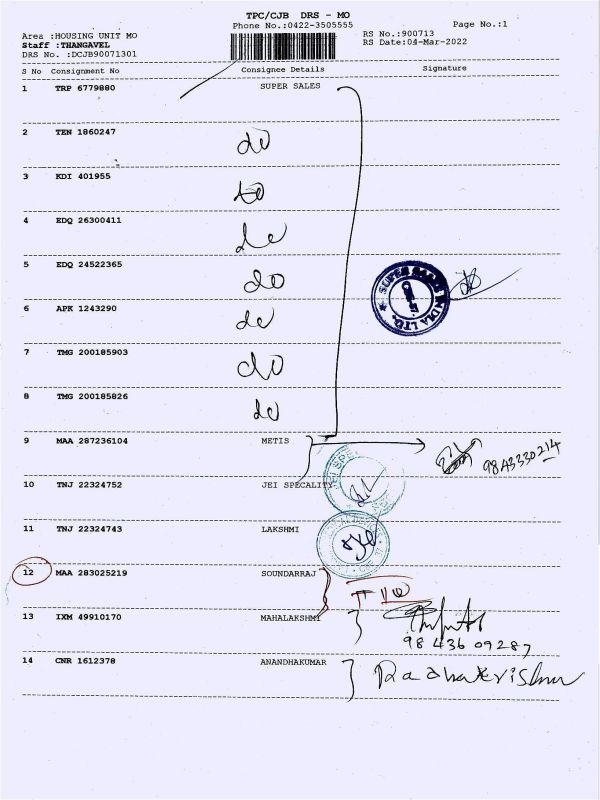 TPC/CJB DRS - MO
Phone No.:0422-3505555
Page No.:1
Area :HOUSING UNIT MO
Staff :THANGAVEL
DRS No. :DCJB90071301
RS No.:900713
RS Date:04-Mar-2022
S No Consignment No Consignee Details Signature
1 TRP 6779880 SUPER SALES
2 TEN 1860247 do
3 KDI 401955 do
4 EDQ 26300411 do
5 EDQ 24522365 do
SUPER SALES INDIA LTD.
6 APK 1243290 do
7 TMG 200185903 do
8 TMG 200185826 do
9 MAA 287236104 METIS
9843330214
10 TNJ 22324752 JEI SPECALITY
11 TNJ 22324743 LAKSHMI
12 MAA 283025219 SOUNDARRAJ
13 IXM 49910170 MAHALAKSHMI
98436 09287
14 CNR 1612378 ANANDHAKUMAR
Radhakrishnan